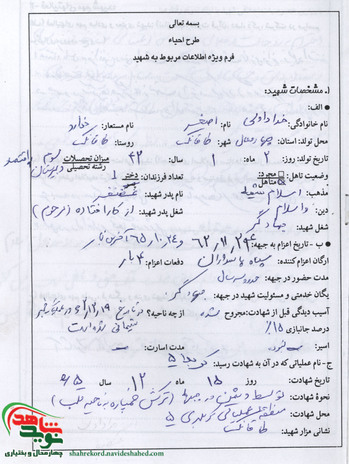 بسمه تعالی
طرح احیاء
فرم ویژه اطلاعات مربوط به شهید
۱. مشخصات شهید:
الف:
نام خانوادگی: خدادادی نام: اصغر نام مستعار: ندارد
محل تولد: استان: چهارمحال شهر: طاقانک روستا: طاقانک
تاریخ تولد: روز ۲ ماه ۱ سال: ۴۲ میزان تحصیلات رشته تحصیلی سوم دبیرستان اقتصاد
وضعیت تاهل: مجرد: متاهل تعداد فرزندان: دختر ۱
مذهب: اسلام شیعه نام پدر شهید:
دین: اسلام شغل پدر شهید: از کار افتاده (مرحوم)
شغل شهید: جهادگر
ب - تاریخ اعزام به جبهه: آخرین بار
ارگان اعزام کننده: سپاه پاسداران دفعات اعزام: ۴ بار
مدت حضور در جبهه: سه سال
یگان خدمتی و مسئولیت شهید در جبهه:
آسیب دیدگی قبل از شهادت: مجروح شده از چه ناحیه؟ در تاریخ
درصد جانبازی ۱۵٪ شیمیائی شده است
اسیر: مدت اسارت: —
ج- نام عملیاتی که در آن به شهادت رسید: کربلای ۵
تاریخ شهادت: روز ۱۵ ماه ۱۲ سال ۶۵
نحوۀ شهادت: توسط دشمن در جبهه (ترکش خمپاره به ناحیه قلب)
محل شهادت: منطقه عملیاتی کربلای ۵
نشانی مزار شهید: طاقانک
نوید شاهد
چهارمحال و بختیاری
shahrekord.navideshahed.com